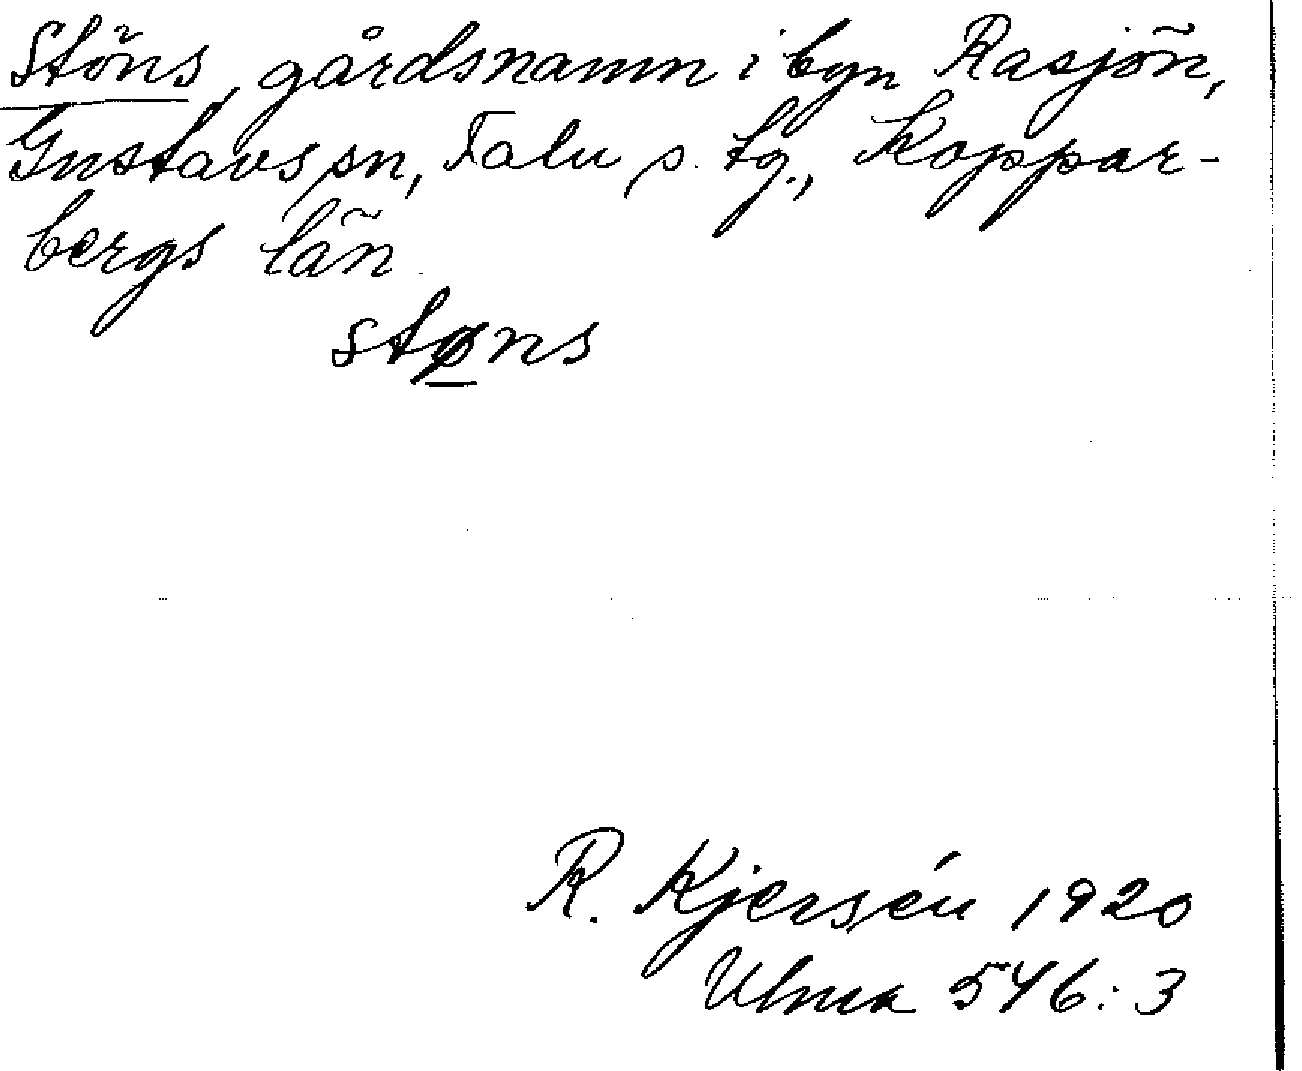 Stöns, gårdsnamn i byn Rasjön,
Gustavs sn, Falu s. tg., Koppar-
bergs län
støns
R. Kjersén 1920
Ulma 546:3